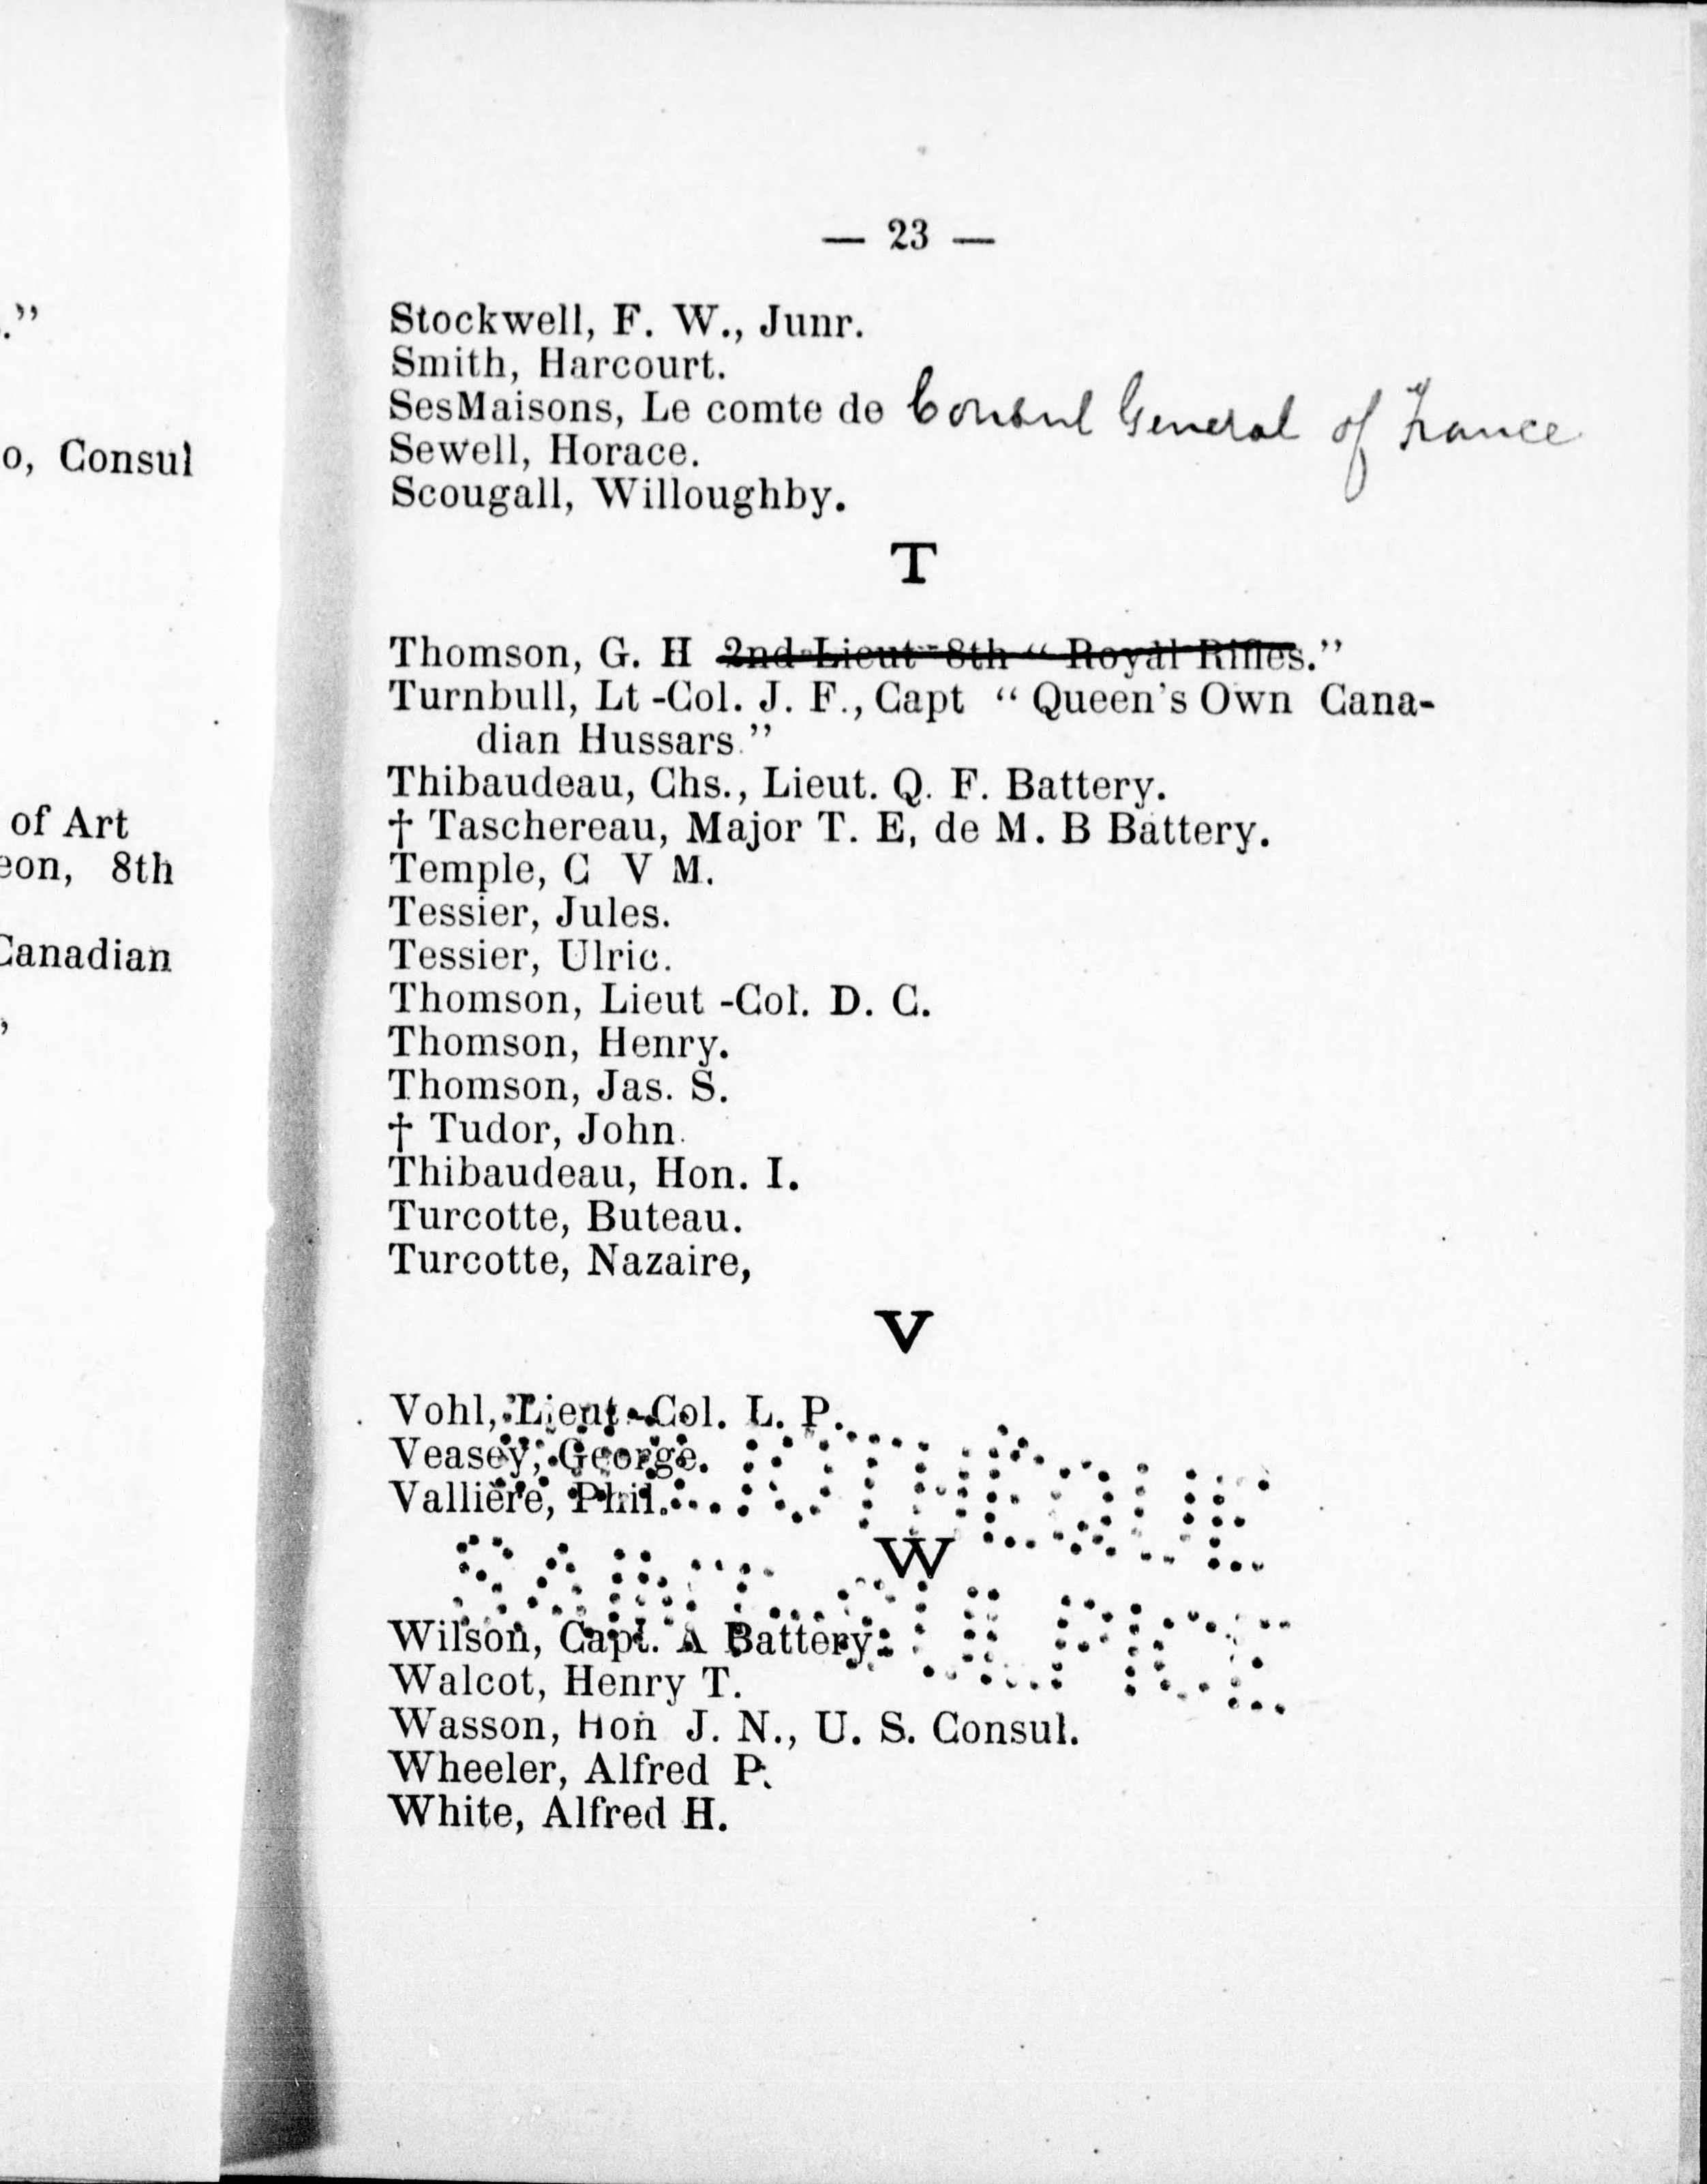 — 23 —
Stockwell, F. W., Junr.
Smith, Harcourt.
SesMaisons, Le comte de Consul General of France
Sewell, Horace.
Scougall, Willoughby.
T
Thomson, G. H 2nd Lieut 8th “ Royal Rifles.”
Turnbull, Lt -Col. J. F., Capt “ Queen's Own Cana-
dian Hussars.”
Thibaudeau, Chs., Lieut. Q. F. Battery.
† Taschereau, Major T. E, de M. B Battery.
Temple, C V M.
Tessier, Jules.
Tessier, Ulric.
Thomson, Lieut -Col. D. C.
Thomson, Henry.
Thomson, Jas. S.
† Tudor, John.
Thibaudeau, Hon. I.
Turcotte, Buteau.
Turcotte, Nazaire,
V
Vohl, Lieut.-Col. L. P.
Veasey, George.
Vallière, Phil.
W
Wilson, Capt. A Battery.
Walcot, Henry T.
Wasson, Hon J. N., U. S. Consul.
Wheeler, Alfred P.
White, Alfred H.
.”
o, Consul
of Art
eon, 8th
Canadian